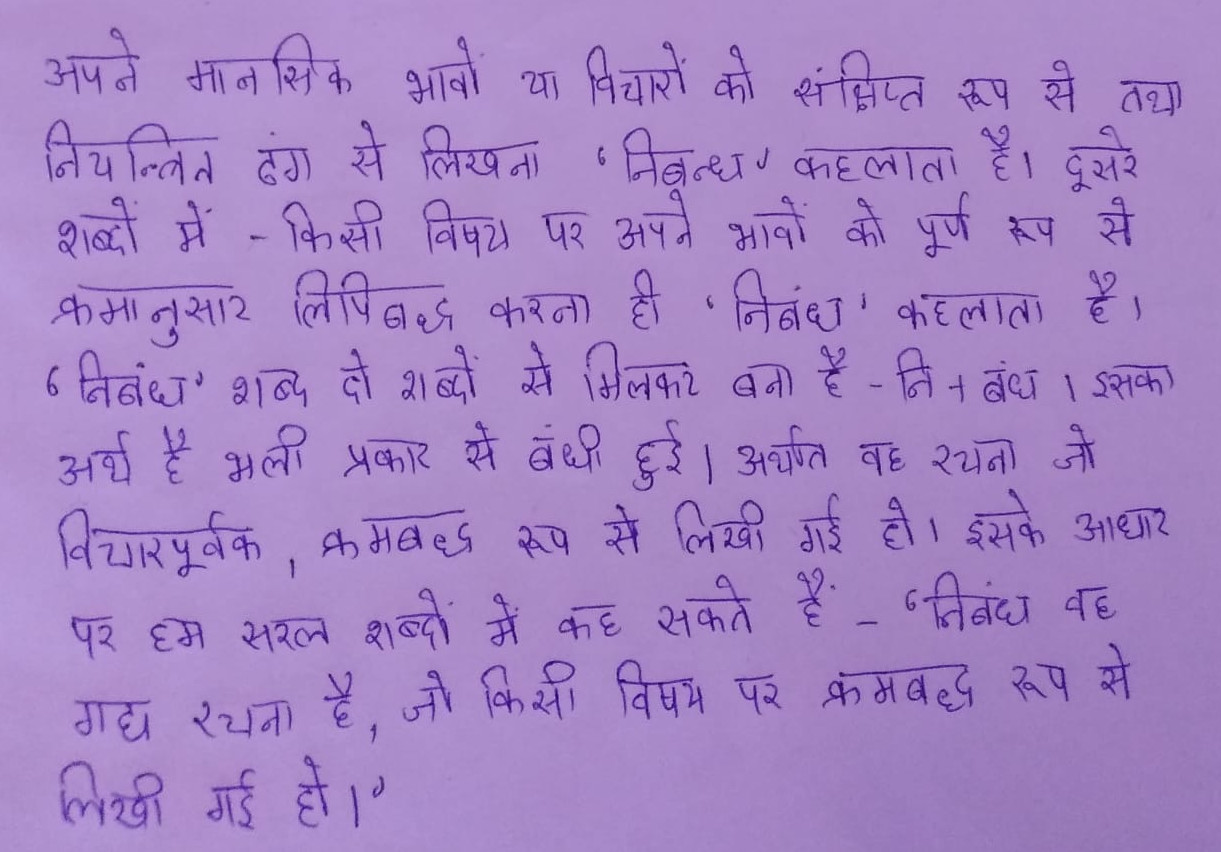 अपने मानसिक भावों या विचारों को संक्षिप्त रूप से तथा
नियन्त्रित ढंग से लिखना ‘निबन्ध’ कहलाता है। दूसरे
शब्दों में - किसी विषय पर अपने भावों को पूर्ण रूप से
क्रमानुसार लिपिबद्ध करना ही ‘निबंध’ कहलाता है।
‘निबंध’ शब्द दो शब्दों से मिलकर बना है - नि + बंध । इसका
अर्थ है भली प्रकार से बंधी हुई। अर्थात वह रचना जो
विचारपूर्वक, क्रमबद्ध रूप से लिखी गई हो। इसके आधार
पर हम सरल शब्दों में कह सकते हैं - ‘निबंध वह
गद्य रचना है, जो किसी विषय पर क्रमबद्ध रूप से
लिखी गई हो।’